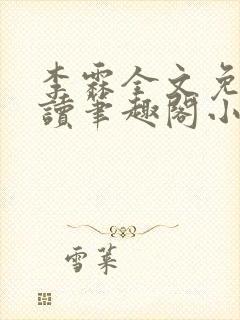 李霖全文免
讀筆趣閣小
雪葉